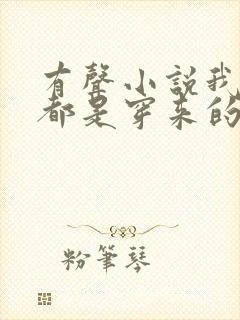 有聲小說我
都是穿來的
粉筆琴